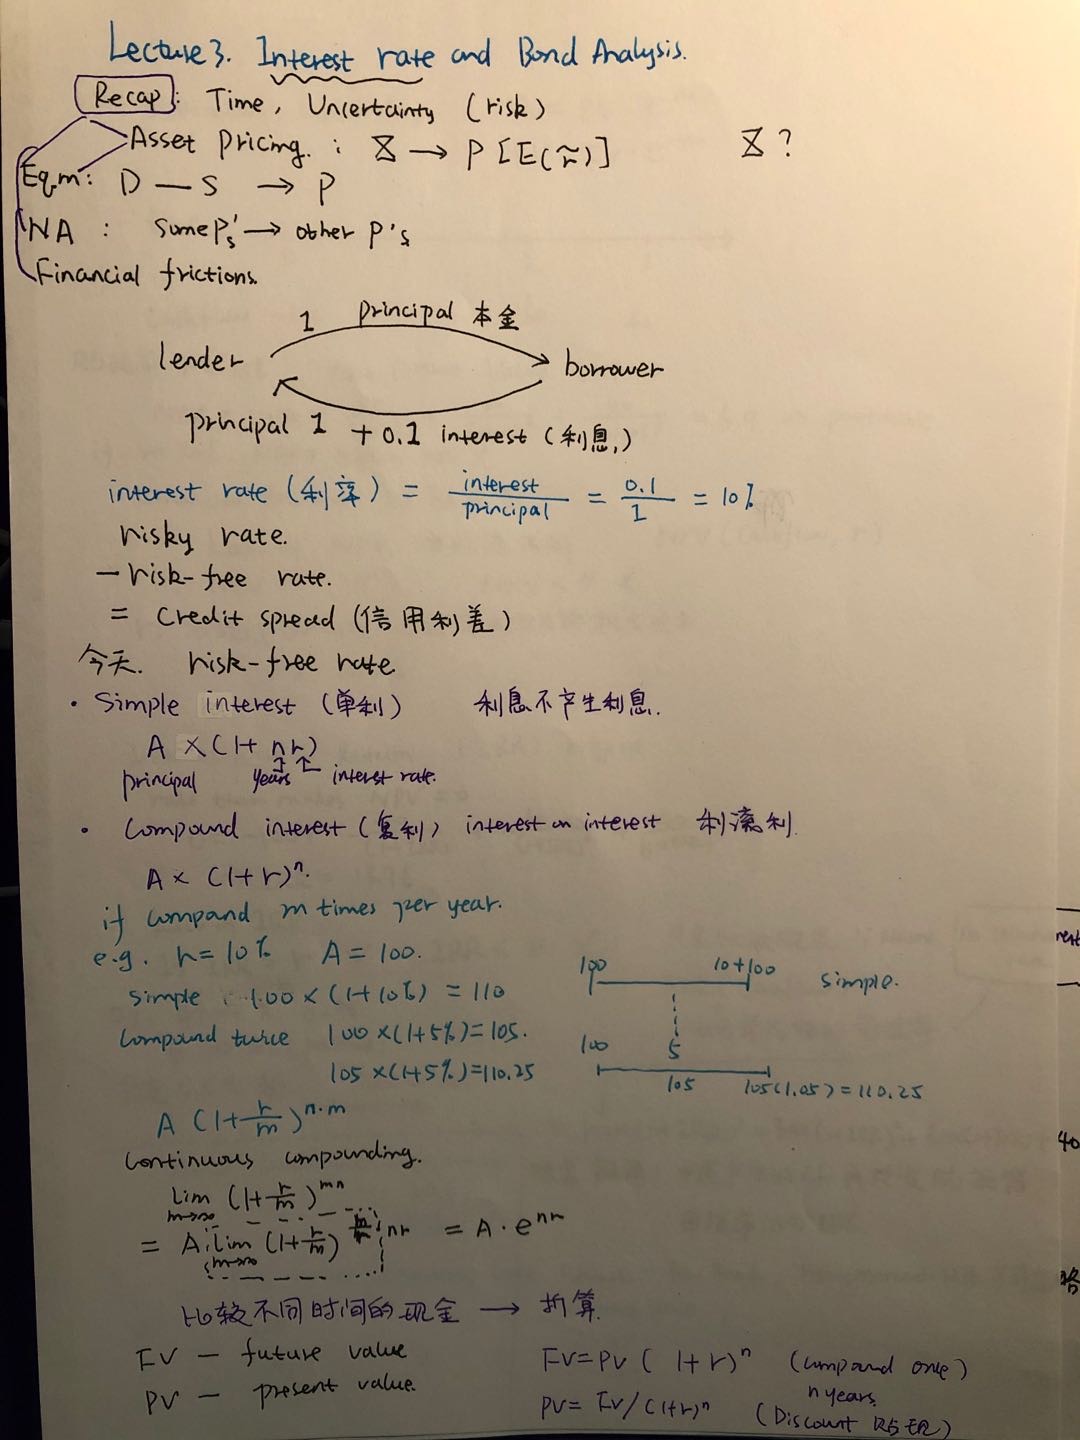 Lecture 3. Interest rate and Bond Analysis.
Recap: Time, Uncertainty (risk)
Asset pricing. : X → P [E(r̃)] X ?
Eqm: D — S → P
NA : some P's → other P's
Financial frictions.
1 principal 本金
lender borrower
principal 1 + 0.1 interest (利息)
interest rate (利率) = interest/principal = 0.1/1 = 10%
risky rate.
— risk-free rate.
= Credit spread (信用利差)
今天. risk-free rate
· Simple interest (单利) 利息不产生利息.
A × (1+ nr)
principal years interest rate.
· Compound interest (复利) interest on interest 利滚利.
A × (1+r)^n.
if compound m times per year.
e.g. r=10% A=100.
simple 100 × (1+10%) = 110
100 10+100 simple.
Compound twice 100 ×(1+5%)=105.
105 ×(1+5%)=110.25
100 5
105 105(1.05)=110.25
A (1+ r/m)^n·m
Continuous compounding.
lim m→∞ (1+ r/m)^mn
= A·lim m→∞ (1+ r/m)^(m/r · nr) = A·e^nr
比较不同时间的现金 → 折算.
FV — future value
PV — present value.
FV=PV (1+r)^n (compound once)
n years.
PV= FV/(1+r)^n (Discount